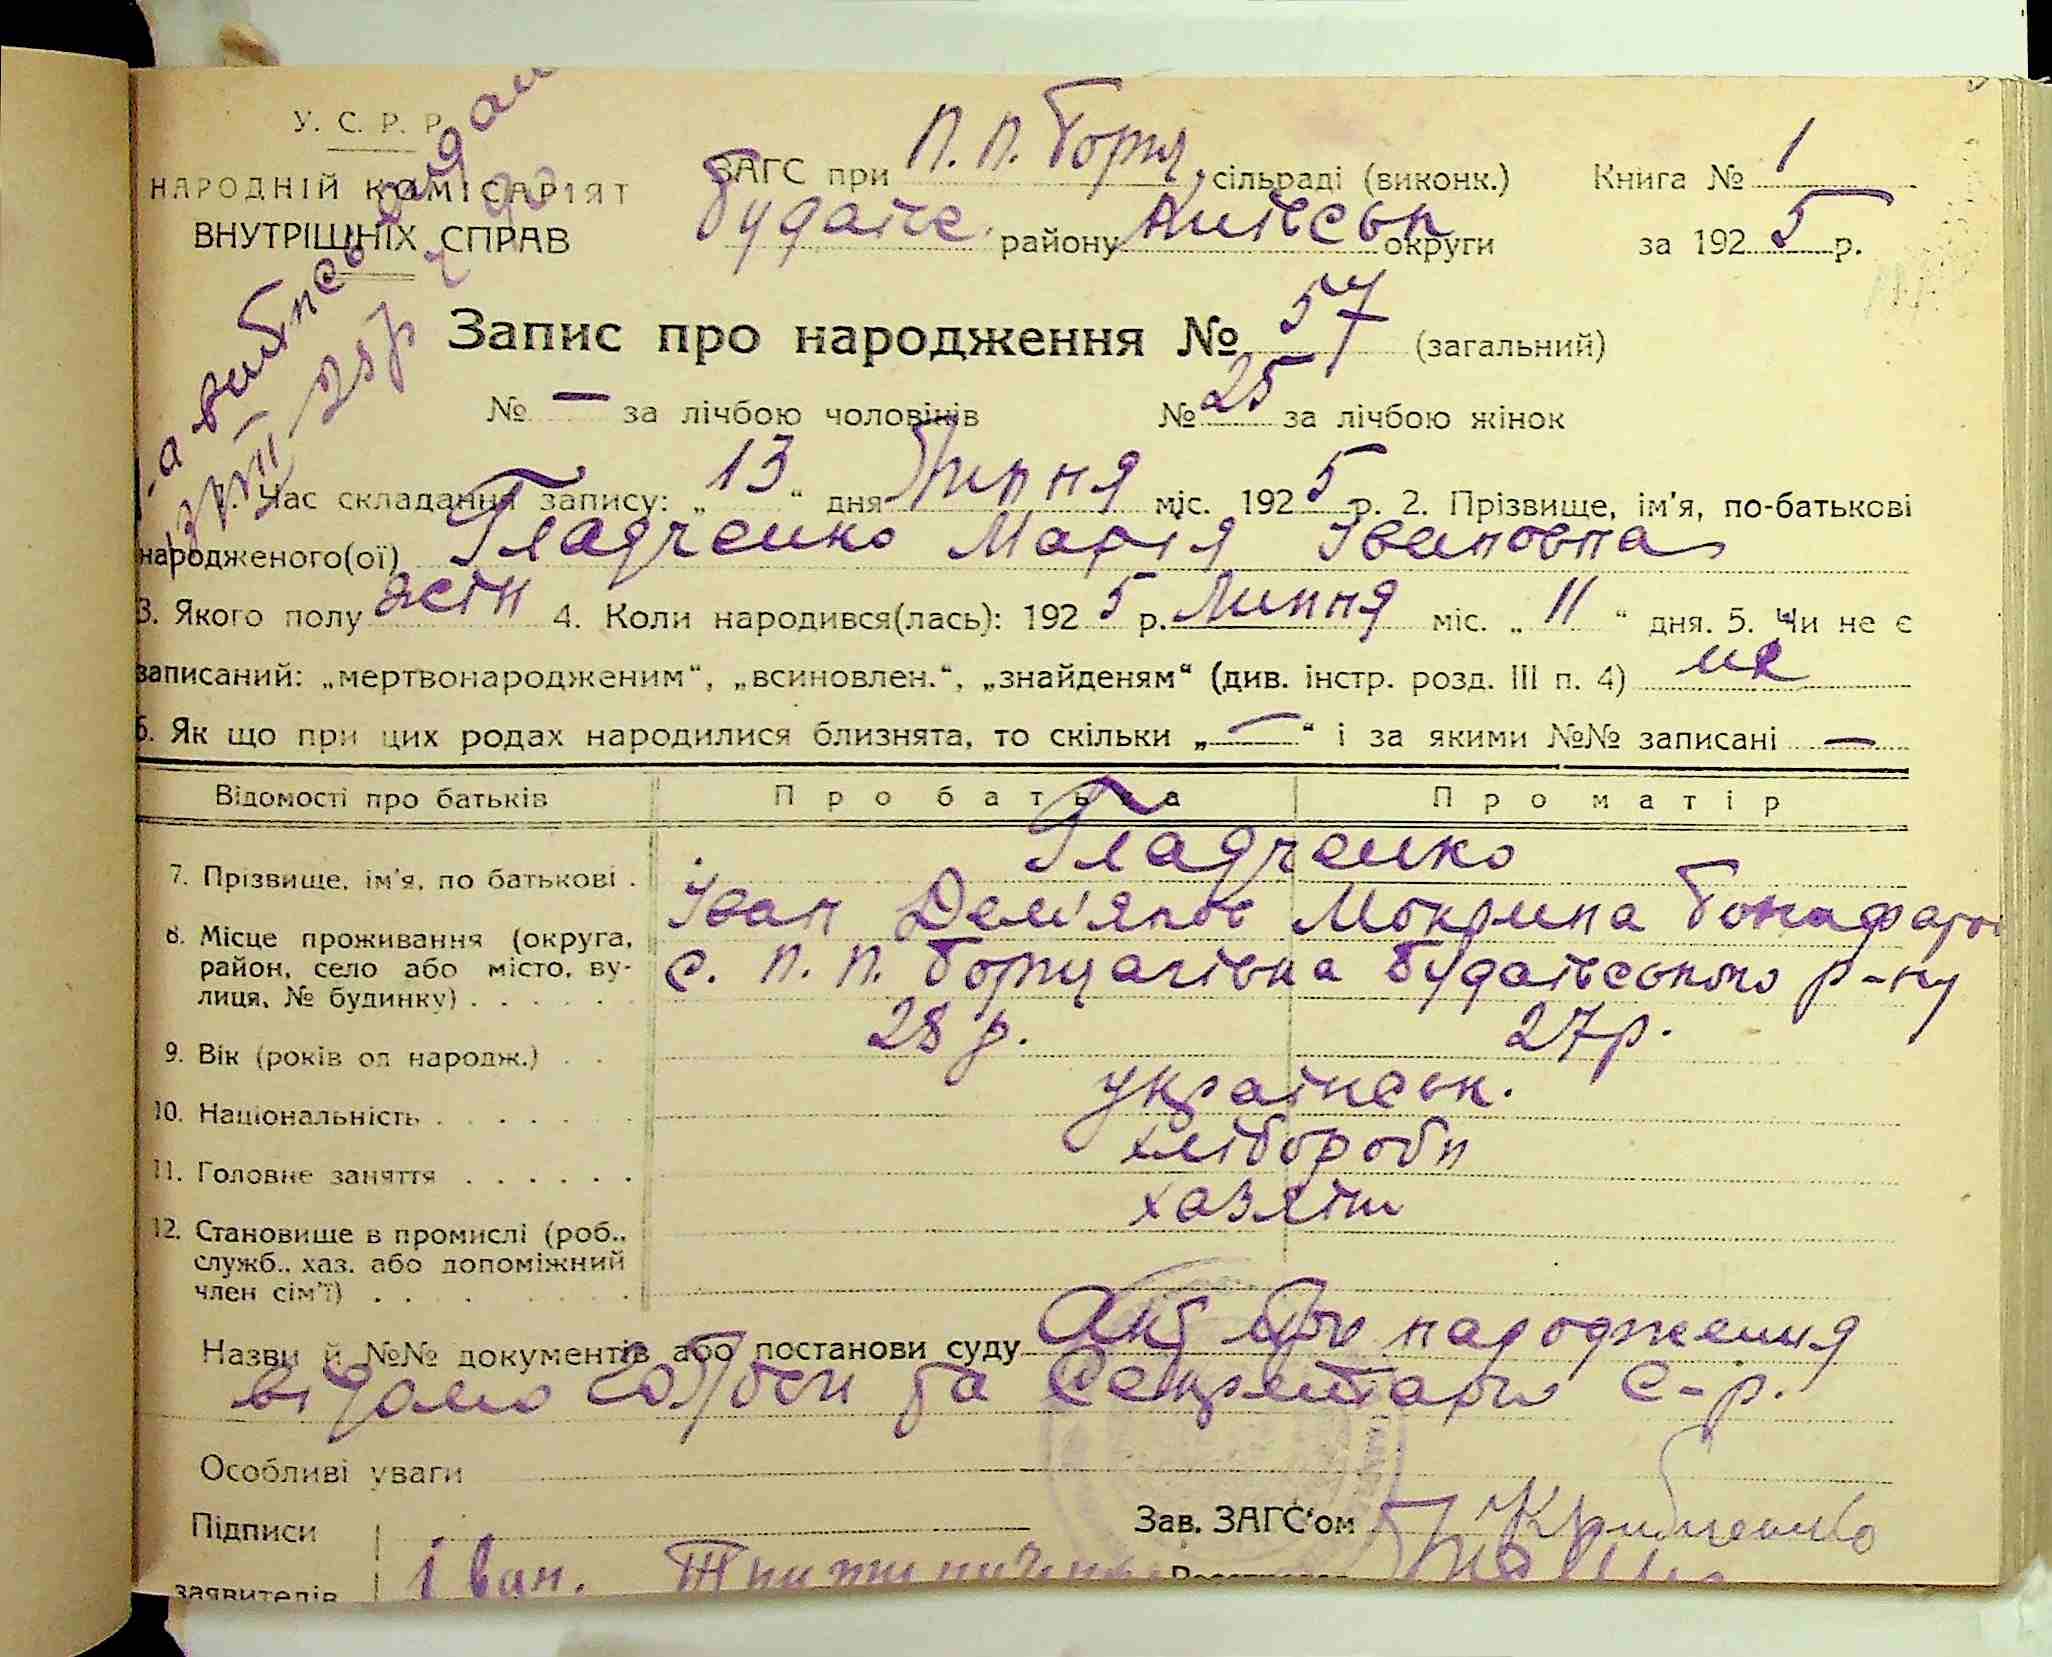 У. С. Р. Р.
НАРОДНІЙ КОМІСАРІЯТ
ВНУТРІШНІХ СПРАВ
ЗАГС при П. П. Борщ. сільраді (виконк.)
Будаївс. району Київськ округи
Книга № 1
за 1925 р.
Запис про народження № 57 (загальний)
№ — за лічбою чоловіків № 25 за лічбою жінок
Час складання запису: „13“ дня Липня міс. 1925 р. 2. Прізвище, ім'я, по-батькові
народженого(ої) Гладченко Марія Івановна
3. Якого полу жін 4. Коли народився(лась): 1925 р. Липня міс. „11“ дня. 5. Чи не є
записаний: „мертвонародженим“, „всиновлен.“, „знайденям“ (див. інстр. розд. III п. 4) не
6. Як що при цих родах народилися близнята, то скільки „—“ і за якими №№ записані —
Відомості про батьків Про батька Про матір
Гладченко
7. Прізвище, ім'я, по батькові .
Іван Дем'янов Мокрина
8. Місце проживання (округа,
район, село або місто, ву-
лиця, № будинку) . . . . . .
с. П. П. Борщагівка Будаївського р-ну
9. Вік (років од народж.) . . 28 р. 27 р.
10. Національність . . . . . . . українськ.
11. Головне заняття . . . . . . хлібороби
12. Становище в промислі (роб.,
служб., хаз. або допоміжний
член сім'ї) . . . . . . . .
хазяїни
Назви й №№ документів або постанови суду Акт про народження
відомо та Секретарю с-р.
Особливі уваги
Підписи
заявителів
Зав. ЗАГС'ом
Іван.